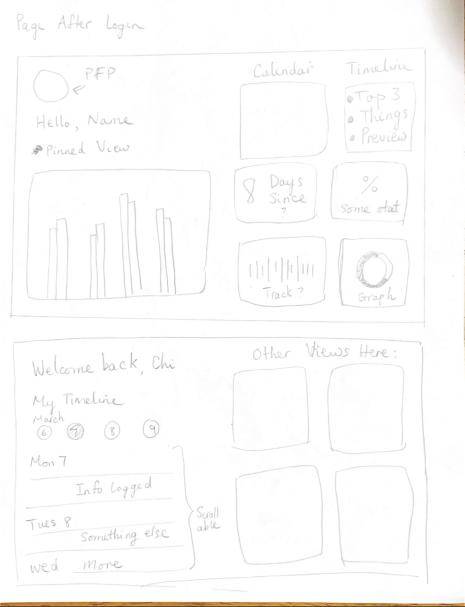 Page After Login
PFP
Hello, Name
Pinned View
Calendar
Timeline
Top 3
Things
Preview
8 Days
Since
?
%
Some stat
Track?
Graph
Welcome back, Chi
My Timeline
March
6 8 9
Mon 7
Info Logged
Tues 8
Something else
Wed More
Scroll
able
Other Views Here: